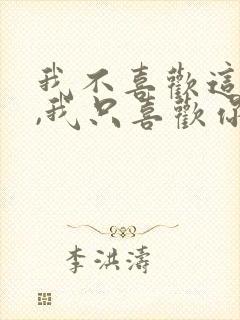 我不喜歡這
,我只喜歡你
李洪濤